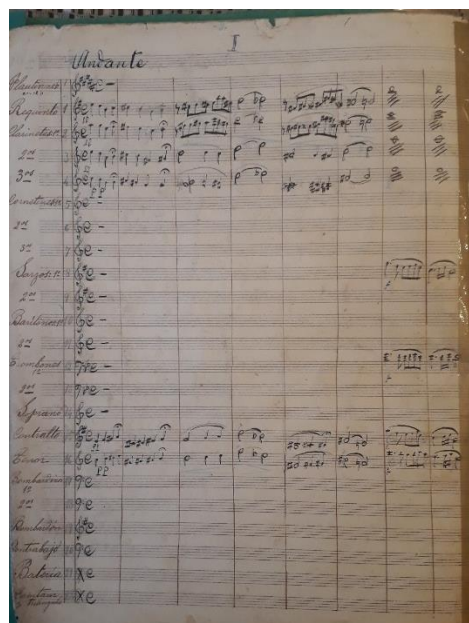 I
Andante
Flautines
Requinto
Clarinetes 1º
2os
3os
Cornetines 1º
2os
3o
Saxos 1º
2os
Barítonos 1º
2os
Trombones 1º
2os
Soprano
Contralto
Tenor
pp
Bombardino 1º
2os
Contrabajo
Batería